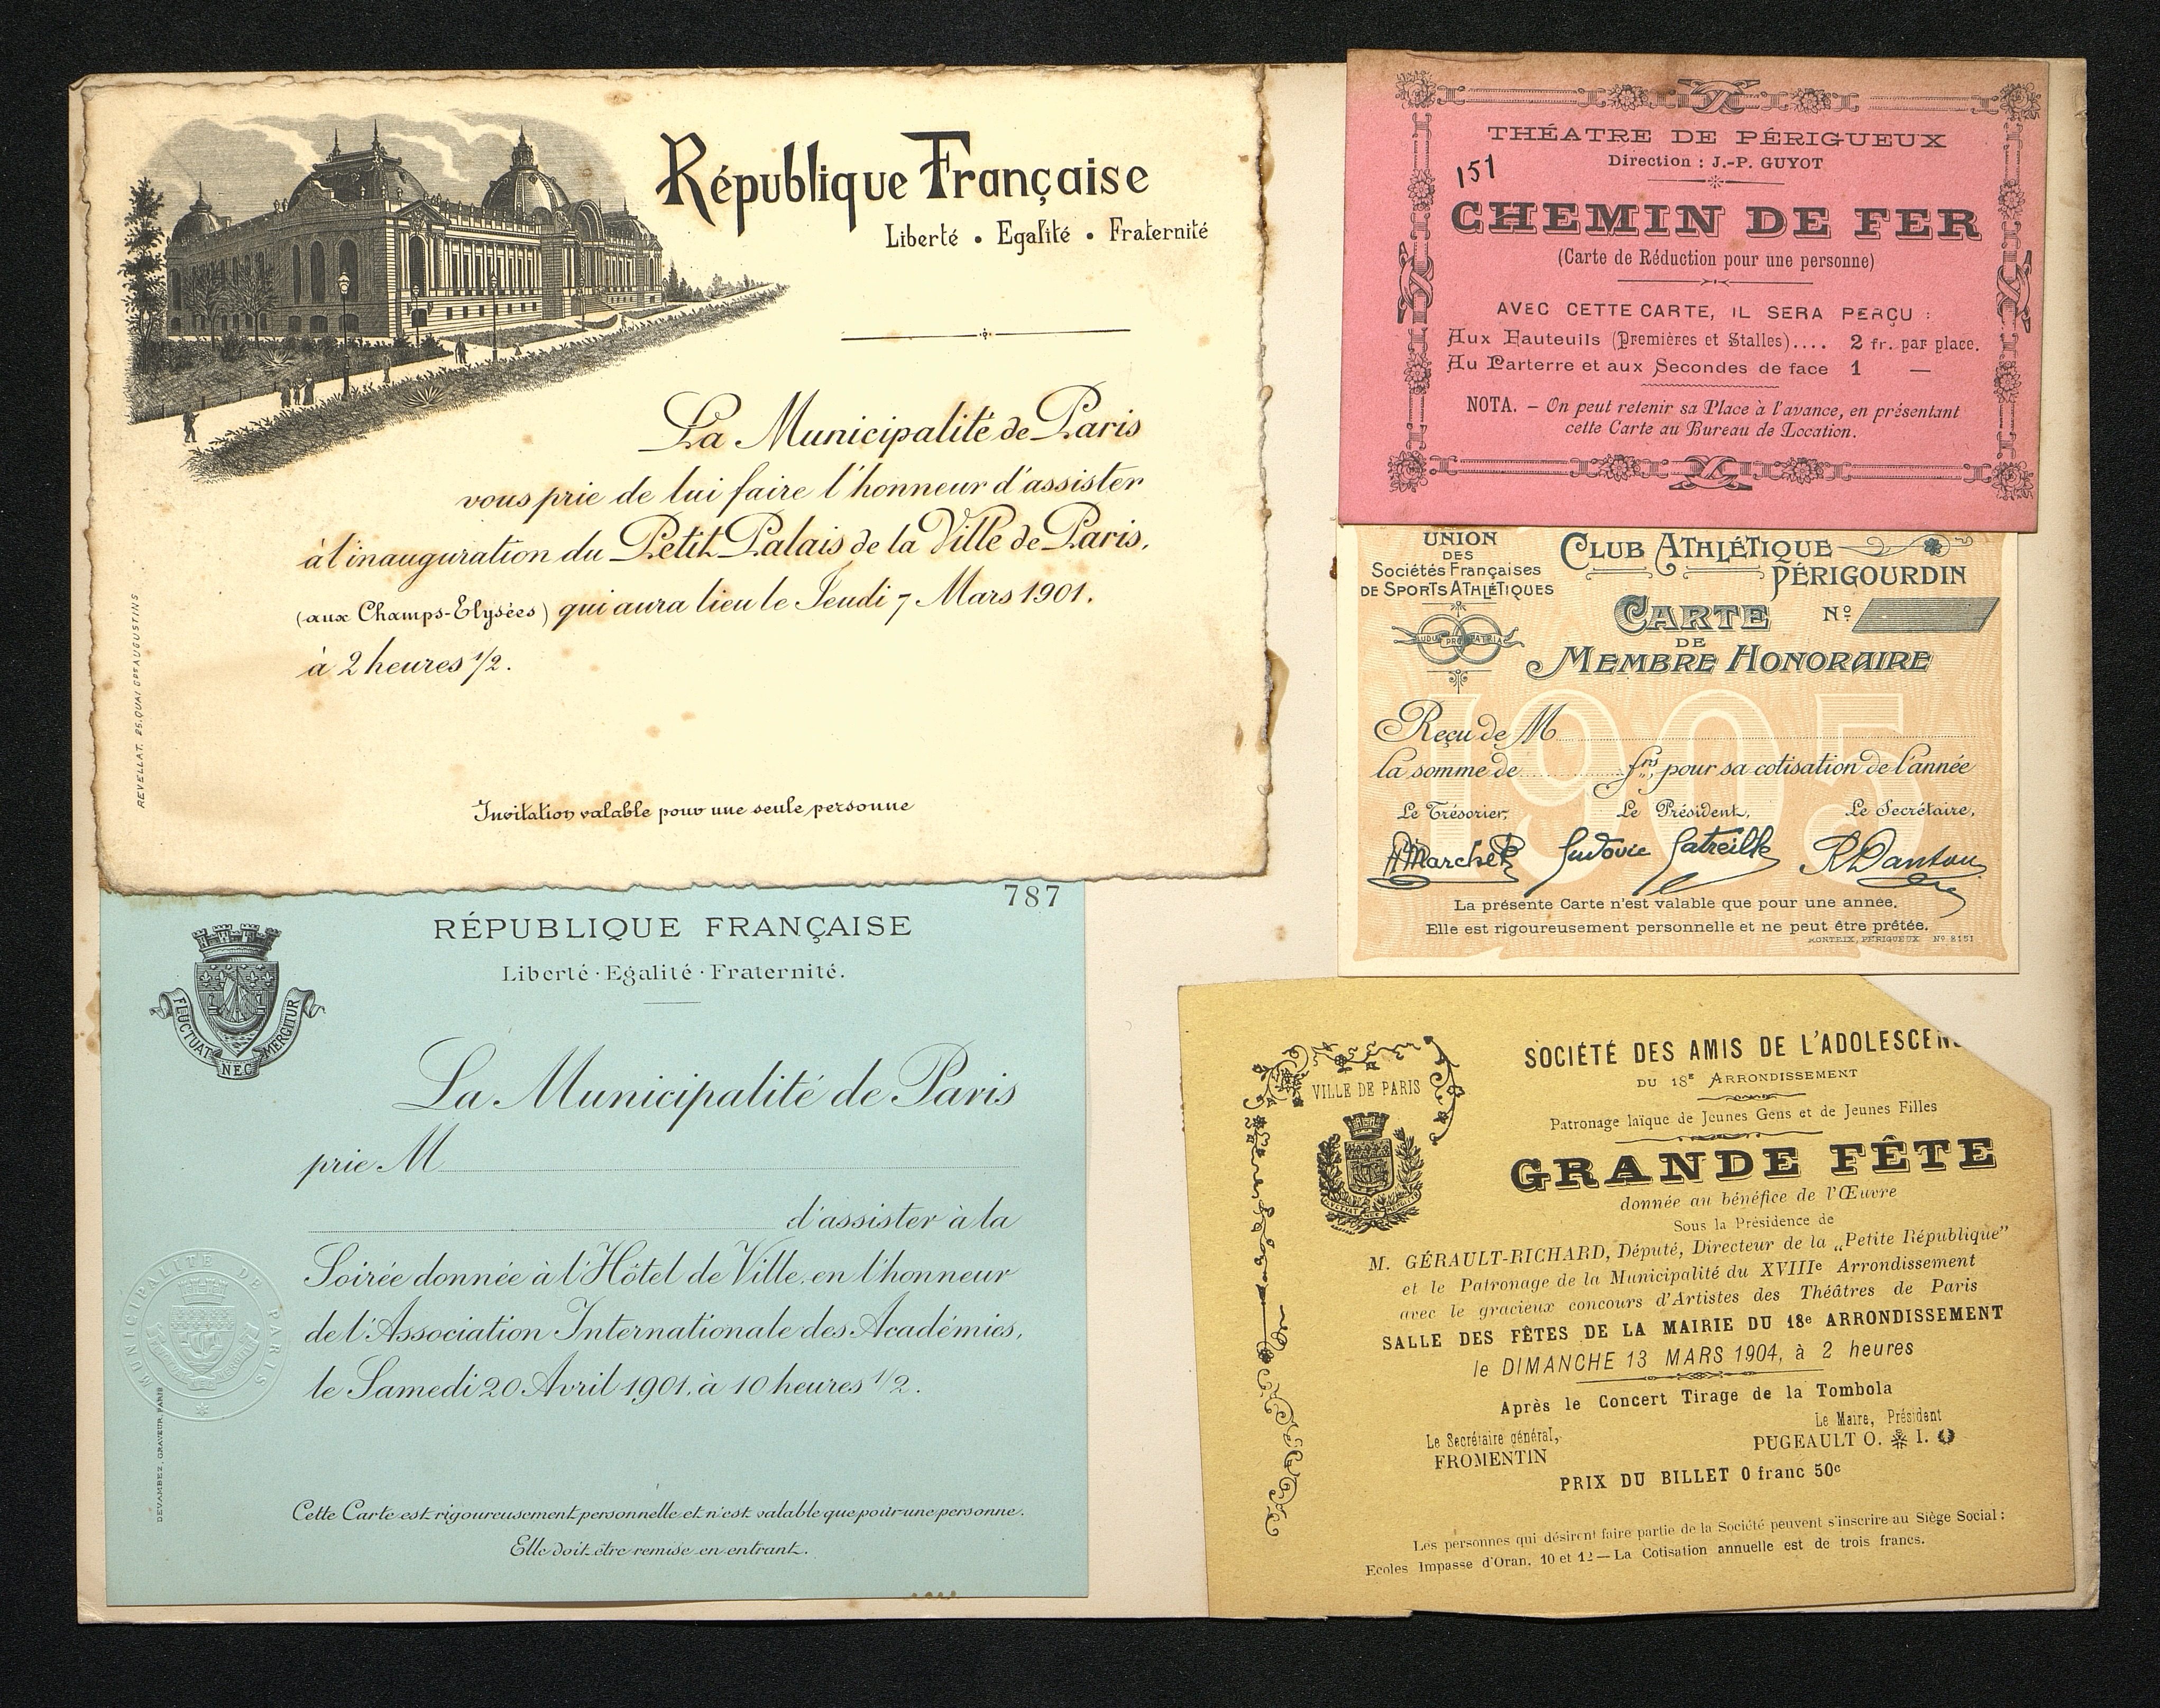 République Française
Liberté • Egalité • Fraternité
La Municipalité de Paris
vous prie de lui faire l'honneur d'assister
à l'inauguration du Petit Palais de la Ville de Paris,
(aux Champs-Elysées) qui aura lieu le Jeudi 7 Mars 1901.
à 2 heures 1/2.
Invitation valable pour une seule personne
REVELLAT. 25. QUAI GDS AUGUSTINS
787
RÉPUBLIQUE FRANÇAISE
Liberté · Egalité · Fraternité.
FLUCTUAT NEC MERGITUR
La Municipalité de Paris
prie M
d'assister à la
Soirée donnée à l'Hôtel de Ville, en l'honneur
de l'Association Internationale des Académies,
le Samedi 20 Avril 1901, à 10 heures 1/2.
MUNICIPALITÉ DE PARIS
DEVAMBEZ, GRAVEUR, PARIS
Cette Carte est rigoureusement personnelle et n'est valable que pour une personne.
Elle doit être remise en entrant.
THÉATRE DE PÉRIGUEUX
Direction : J.-P. GUYOT
151
CHEMIN DE FER
(Carte de Réduction pour une personne)
AVEC CETTE CARTE, IL SERA PERÇU :
Aux Fauteuils (Premières et Stalles).... 2 fr. par place.
Au Parterre et aux Secondes de face 1 —
NOTA. – On peut retenir sa Place à l'avance, en présentant
cette Carte au Bureau de Location.
UNION
DES
Sociétés Françaises
DE SPORTS ATHLÉTIQUES
LUDUS PRO PATRIA
CLUB ATHLÉTIQUE
PÉRIGOURDIN
CARTE No
DE
MEMBRE HONORAIRE
1905
Reçu de M
la somme de frs, pour sa cotisation de l'année
Le Trésorier, Le Président, Le Secrétaire,
Ludovic R Danton
La présente Carte n'est valable que pour une année.
Elle est rigoureusement personnelle et ne peut être prêtée.
RONTEIX, PÉRIGUEUX No 8151
VILLE DE PARIS
SOCIÉTÉ DES AMIS DE L'ADOLESCEN
DU 18E ARRONDISSEMENT
Patronage laïque de Jeunes Gens et de Jeunes Filles
GRANDE FÊTE
donnée au bénéfice de l'Œuvre
Sous la Présidence de
M. GÉRAULT-RICHARD, Député, Directeur de la „Petite République"
et le Patronage de la Municipalité du XVIIIe Arrondissement
avec le gracieux concours d'Artistes des Théâtres de Paris
SALLE DES FÊTES DE LA MAIRIE DU 18e ARRONDISSEMENT
le DIMANCHE 13 MARS 1904, à 2 heures
Après le Concert Tirage de la Tombola
Le Secrétaire général,
FROMENTIN
Le Maire, Président
PUGEAULT O. I.
PRIX DU BILLET 0 franc 50c
Les personnes qui désirent faire partie de la Société peuvent s'inscrire au Siège Social :
Ecoles Impasse d'Oran, 10 et 12 — La Cotisation annuelle est de trois francs.